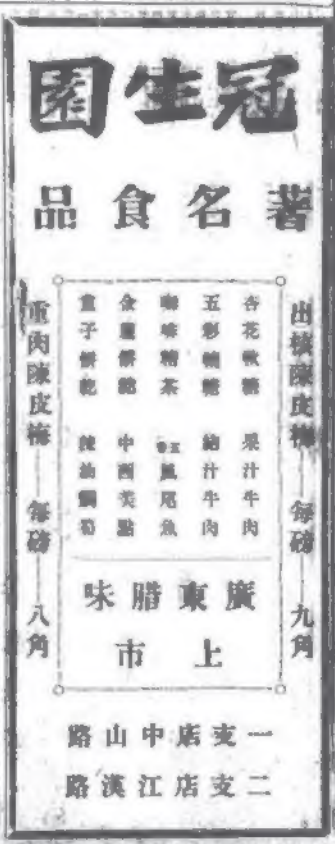 冠生園
著名食品
出核陳皮梅——每磅——九角
杏花軟糖 果汁牛肉
五彩糖 汁牛肉
茶 五香鳳尾魚
金餅乾 中西美點
童子餅乾 辣油筍
廣東腊味
上市
重肉陳皮梅——每磅——八角
一支店中山路
二支店江漢路